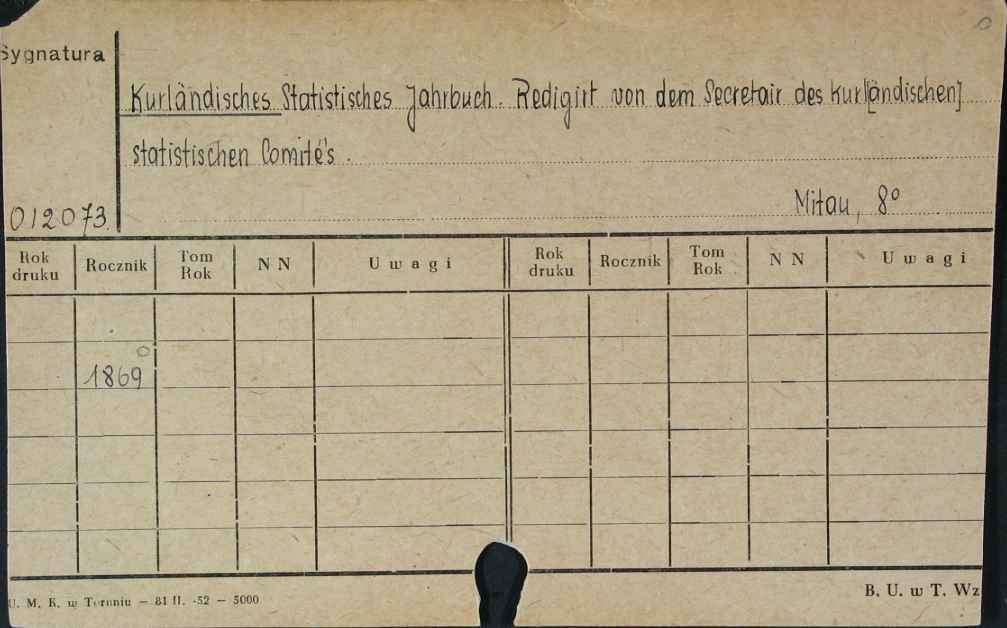 Sygnatura
Kurländisches Statistisches Jahrbuch. Redigirt von dem Secretair des kurl[ändischen]
statistischen Comité's.
012073
Mitau, 8°
Rok druku Rocznik Tom Rok N N Uwagi Rok druku Rocznik Tom Rok N N Uwagi
1869
U. M. K. w Toruniu — 81 II. -52 — 5000
B. U. w T. Wz